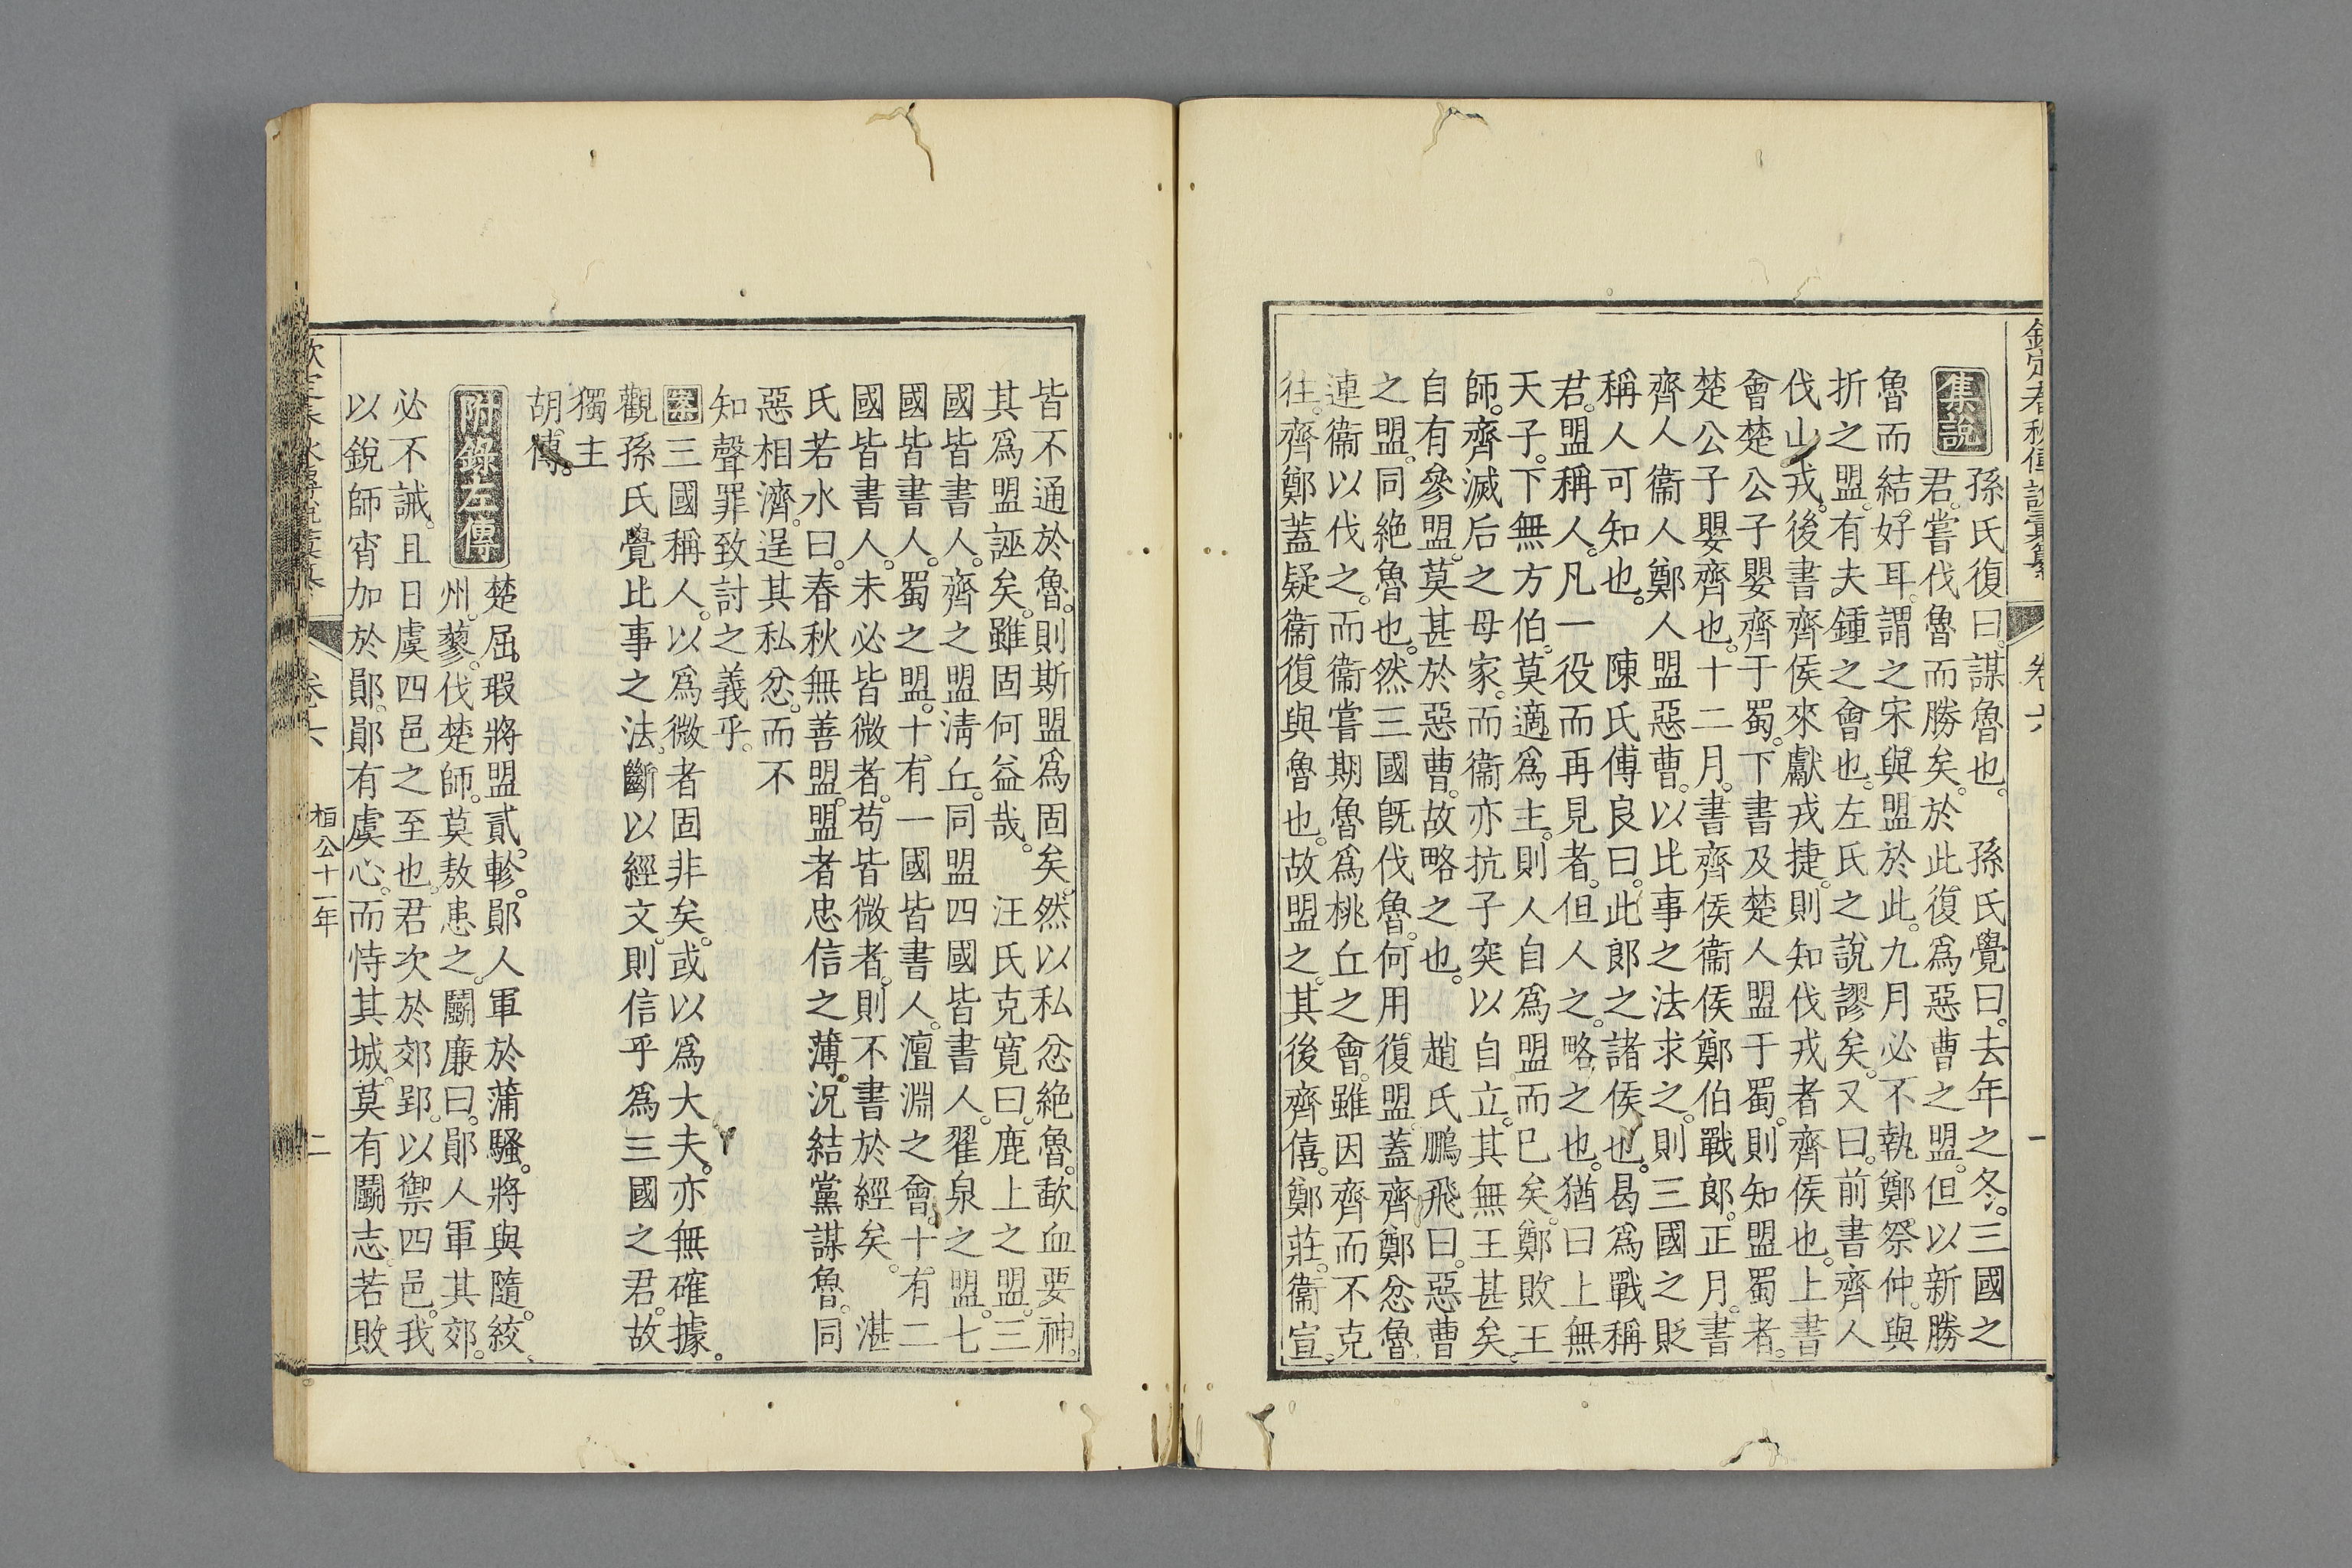 欽定春秋傳說彙纂 卷六 一
集說
孫氏復曰。謀魯也。 孫氏覺曰。去年之冬。三國之
君。嘗伐魯而勝矣。於此復爲惡曹之盟。但以新勝
魯而結好耳。謂之宋與盟於此。九月必不執鄭祭仲。與
折之盟。有夫鍾之會也。左氏之說謬矣。又曰。前書齊人
伐山戎。後書齊侯來獻戎捷。則知伐戎者齊侯也。上書
會楚公子嬰齊于蜀。下書及楚人盟于蜀。則知盟蜀者。
楚公子嬰齊也。十二月。書齊侯衞侯鄭伯戰郎。正月。書
齊人衞人鄭人盟惡曹。以比事之法求之。則三國之貶
稱人可知也。 陳氏傅良曰。此郎之諸侯也。曷爲戰稱
君。盟稱人。凡一役而再見者。但人之。略之也。猶曰上無
天子。下無方伯。莫適爲主。則人自爲盟而已矣。鄭敗王
師。齊滅后之母家。而衞亦抗子突以自立。其無王甚矣。
自有參盟。莫甚於惡曹。故略之也。 趙氏鵬飛曰。惡曹
之盟。同絶魯也。然三國旣伐魯。何用復盟。蓋齊鄭忿魯
連衞以伐之。而衞嘗期魯爲桃丘之會。雖因齊而不克
往。齊鄭蓋疑衞復與魯也。故盟之。其後齊僖。鄭莊。衞宣。
皆不通於魯。則斯盟爲固矣。然以私忿絶魯。歃血要神。
其爲盟誣矣。雖固何益哉。 汪氏克寬曰。鹿上之盟。三
國皆書人。齊之盟淸丘。同盟四國皆書人。翟泉之盟。七
國皆書人。蜀之盟。十有一國皆書人。澶淵之會。十有二
國皆書人。未必皆微者。苟皆微者。則不書於經矣。 湛
氏若水曰。春秋無善盟。盟者忠信之薄。況結黨謀魯。同
惡相濟。逞其私忿。而不
知聲罪致討之義乎。
案三國稱人。以爲微者固非矣。或以爲大夫。亦無確據。
觀孫氏覺比事之法。斷以經文。則信乎爲三國之君。故
獨主
胡傳。
附錄左傳
楚屈瑕將盟貳。軫。鄖人軍於蒲騷。將與隨。絞。
州。蓼。伐楚師。莫敖患之。鬭廉曰。鄖人軍其郊。
必不誡。且日虞四邑之至也。君次於郊郢。以禦四邑。我
以銳師宵加於鄖。鄖有虞心。而恃其城。莫有鬭志。若敗
欽定春秋傳說彙纂 卷六 桓公十一年 二